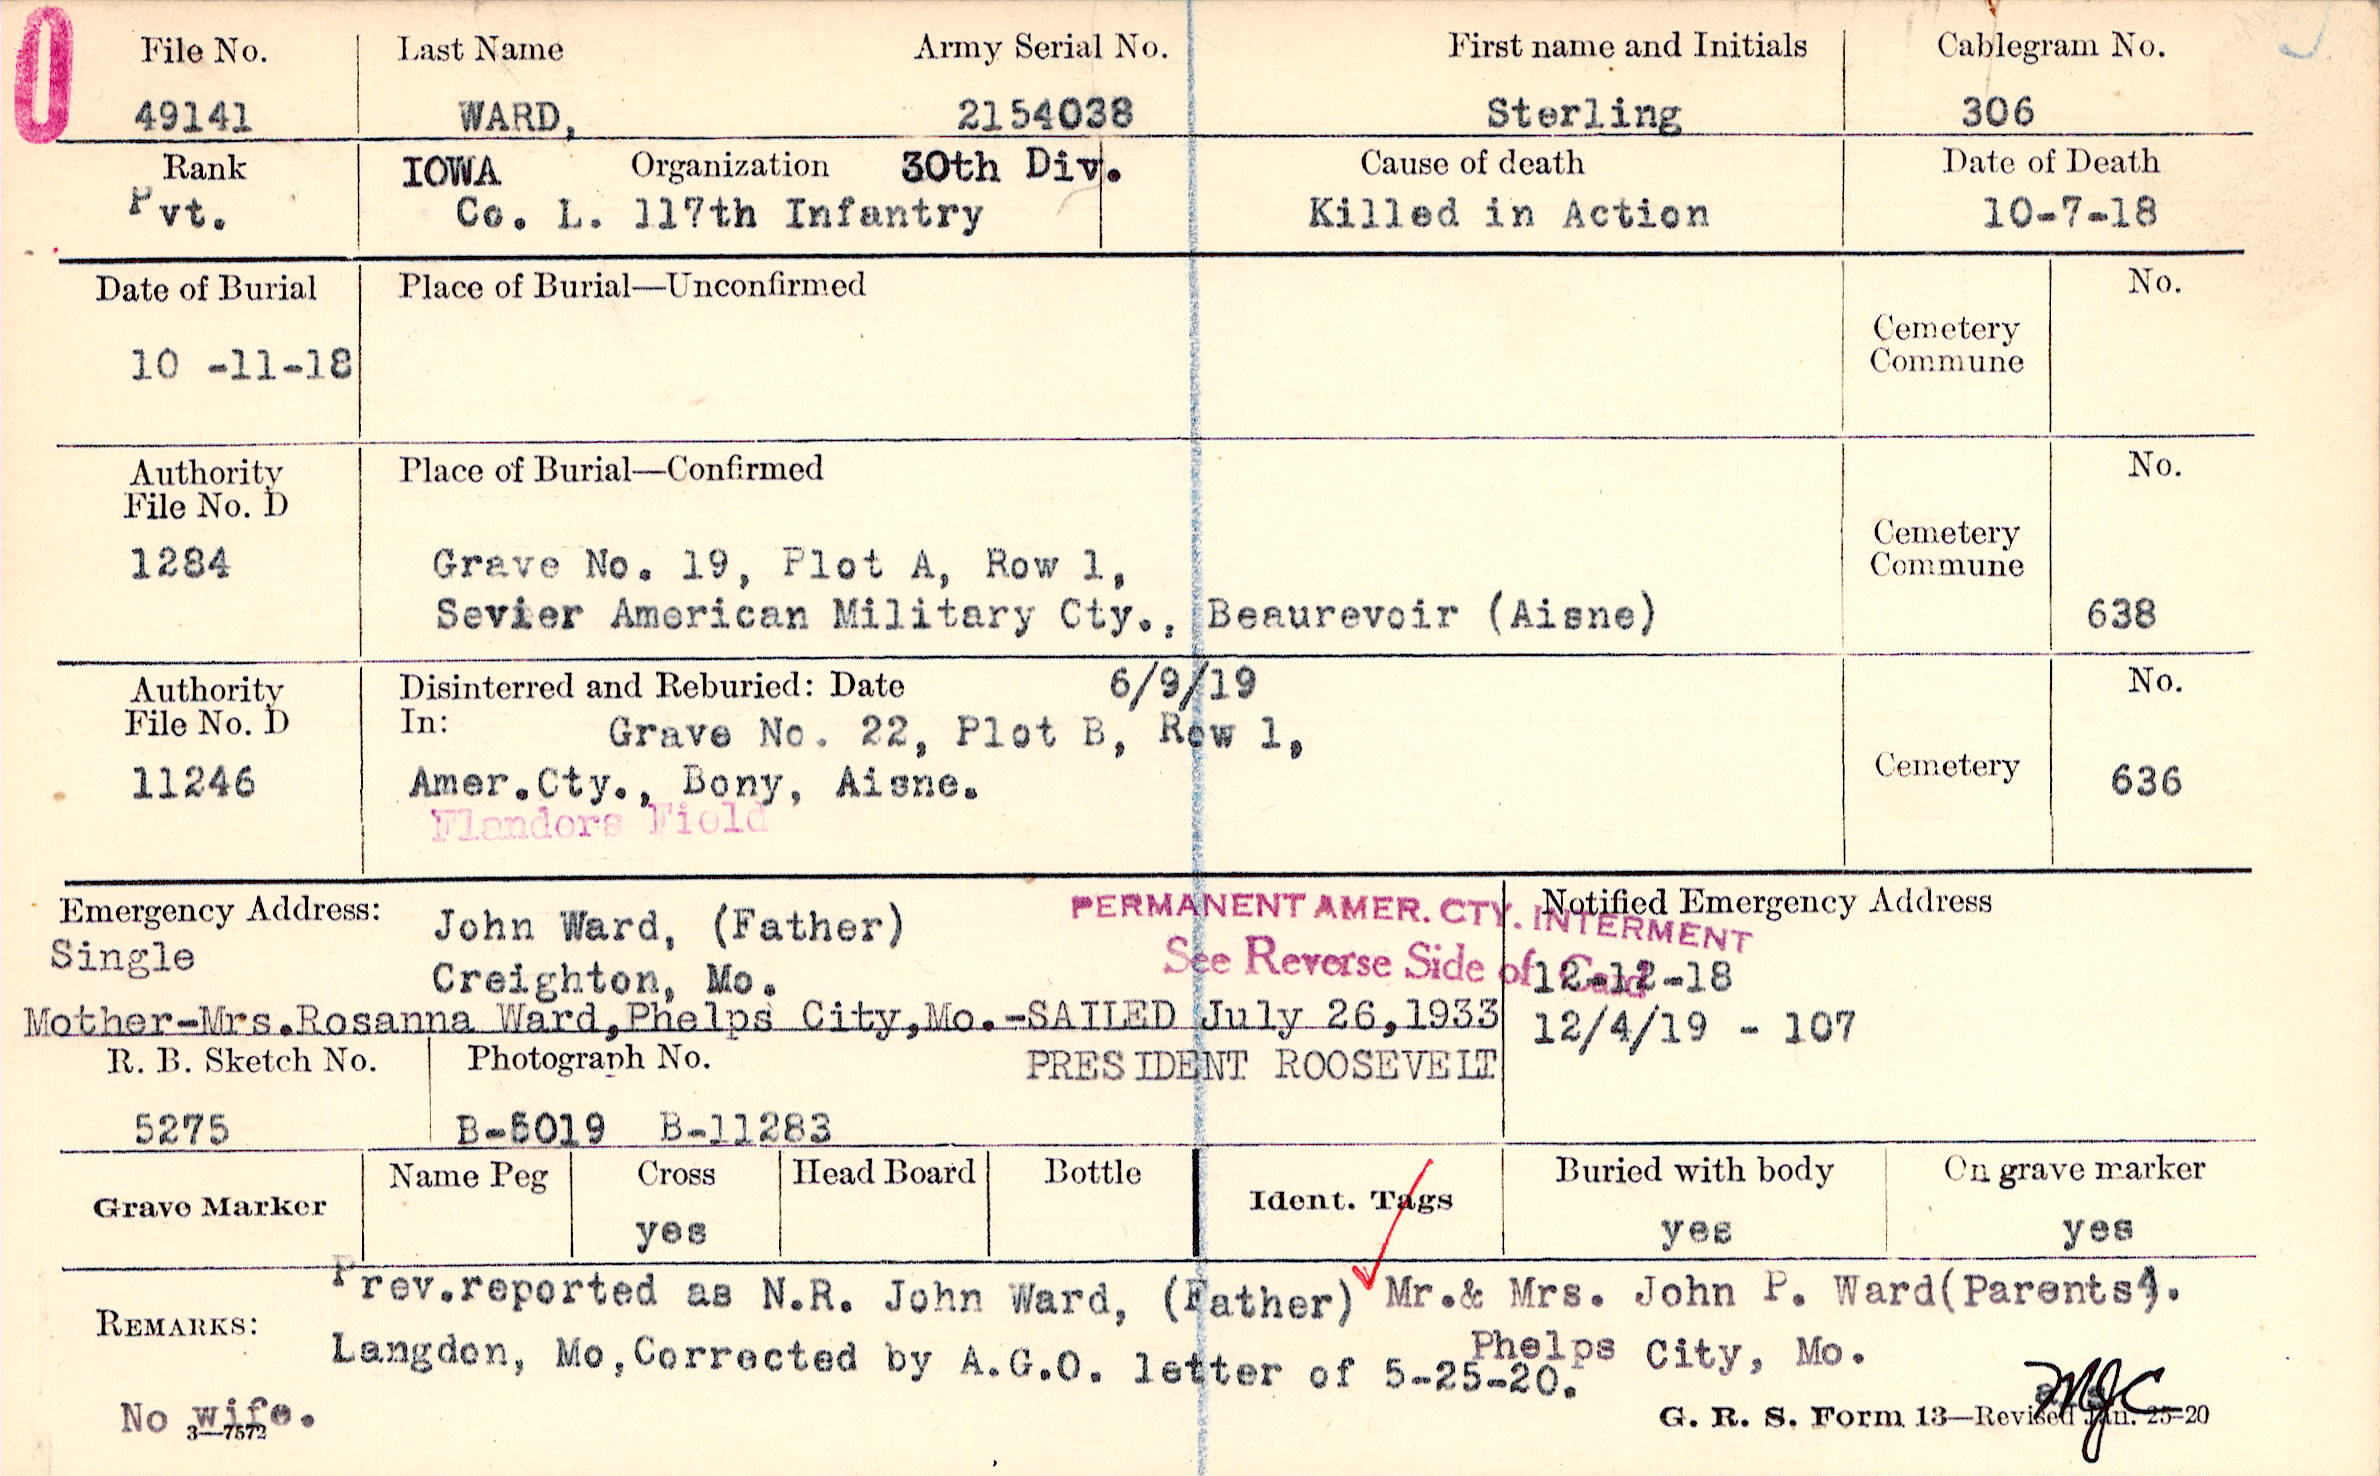 File No. Last Name Army Serial No. First name and Initials Cablegram No.
49141 WARD, 2154038 Sterling 306
Rank IOWA Organization 30th Div. Cause of death Date of Death
Pvt. Co. L. 117th Infantry Killed in Action 10-7-18
Date of Burial Place of Burial—Unconfirmed No.
10 -11-18 Cemetery
Commune
Authority Place of Burial—Confirmed No.
File No. D
Cemetery
1284 Grave No. 19, Plot A, Row 1, Commune
Sevier American Military Cty., Beaurevoir (Aisne) 638
Authority Disinterred and Reburied: Date 6/9/19 No.
File No. D In: Grave No. 22, Plot B, Row 1,
11246 Amer.Cty., Bony, Aisne. Cemetery 636
Flanders Field
Emergency Address: John Ward, (Father) PERMANENT AMER. CTY. INTERMENT Notified Emergency Address
Single Creighton, Mo. See Reverse Side of Card 12-12-18
Mother-Mrs.Rosanna Ward,Phelps City,Mo.-SAILED July 26,1933 12/4/19 - 107
R. B. Sketch No. Photograph No. PRESIDENT ROOSEVELT
5275 B-5019 B-11283
Grave Marker Name Peg Cross Head Board Bottle Ident. Tags Buried with body On grave marker
yes yes yes
Prev.reported as N.R. John Ward, (Father) Mr.& Mrs. John P. Ward(Parents).
REMARKS: Langdon, Mo,Corrected by A.G.O. letter of 5-25-20. Phelps City, Mo.
No wife. MJC
3—7572 G. R. S. Form 13—Revised Jan. 25-20